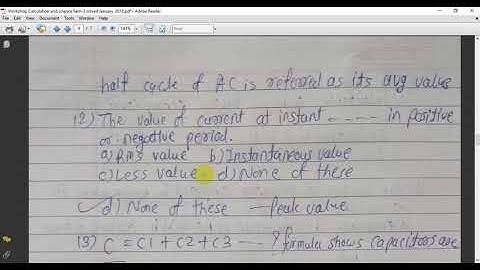 Workshop Calculation and science Sem-3 solved January 2018.pdf - Adobe Reader
File Edit View Window Help
4 / 7
144%
half cycle of AC is referred as its avg value
12) The value of current at instant ---- in positive
or negative period.
a) RMS value b) Instantaneous value
c) Less value d) None of these
d) None of these — Peak value
13) C = C1 + C2 + C3 --- ? formula shows capacitors are